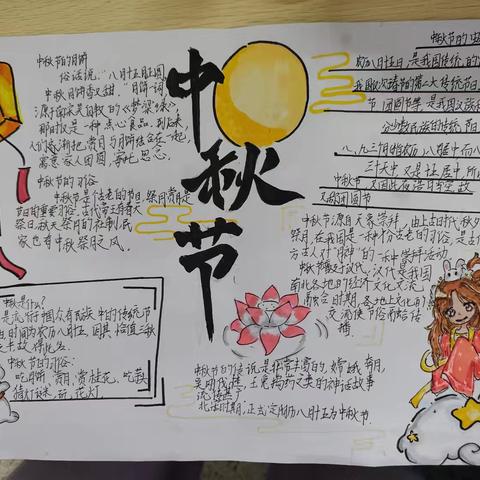 中秋节
中秋节的月饼
俗话说:"八月十五月正圆
中秋月饼香又甜."月饼一词
源于南宋吴自牧的《梦粱录》,
那时仅是一种点心食品.到后来
人们逐渐把赏月与月饼结合在一起,
寓意家人团圆,寄托思念.
中秋节的习俗
中秋节是个古老的节日,祭月赏月是
节日的重要习俗.古代帝王有春天
祭日,秋天祭月的社制,民
家也有中秋祭月之风.
中秋是什么?
是流行于中国众有民族中的传统节
日时间为农历八月十五,因其恰值三秋
之半,故得此名.
中秋节的习俗:
吃月饼、赏月、赏桂花、吃
猜灯谜、玩花灯.
中秋节的
农历八月十五日,是我国传统的
我国仅次于春节的第二大传统节日
节、团圆节等,是我国汉族和
分少数民族的传统节日
八、九三月指农历八月居中,而八
三十天中,又是十五居中,所
中秋节,又因此夜浩月当空,故
又称团圆节
中秋节源自天象崇拜,由上古时代秋夕
祭月,在我国是一种十分古老的习俗,是古代
方古人对"月神"的一种崇拜活动
中秋节普及于汉代,汉代是我国
南北各地的经济文化交流
融合时期,各地上文化上的
交流使节俗融合传
播
中秋节的传说是非常丰富的,嫦娥奔月,
吴刚伐桂,玉兔捣药之类的神话故事
流传甚广
北宋时期,正式定阴历八月十五为中秋节.